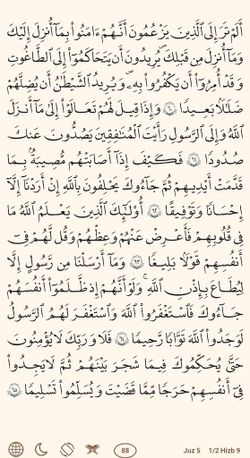 أَلَمْ تَرَ إِلَى ٱلَّذِينَ يَزْعُمُونَ أَنَّهُمْ ءَامَنُوا۟ بِمَآ أُنزِلَ إِلَيْكَ
وَمَآ أُنزِلَ مِن قَبْلِكَ يُرِيدُونَ أَن يَتَحَاكَمُوٓا۟ إِلَى ٱلطَّٰغُوتِ
وَقَدْ أُمِرُوٓا۟ أَن يَكْفُرُوا۟ بِهِۦ وَيُرِيدُ ٱلشَّيْطَٰنُ أَن يُضِلَّهُمْ
ضَلَٰلًۢا بَعِيدًا ٦٠ وَإِذَا قِيلَ لَهُمْ تَعَالَوْا۟ إِلَىٰ مَآ أَنزَلَ
ٱللَّهُ وَإِلَى ٱلرَّسُولِ رَأَيْتَ ٱلْمُنَٰفِقِينَ يَصُدُّونَ عَنكَ
صُدُودًا ٦١ فَكَيْفَ إِذَآ أَصَٰبَتْهُم مُّصِيبَةٌۢ بِمَا
قَدَّمَتْ أَيْدِيهِمْ ثُمَّ جَآءُوكَ يَحْلِفُونَ بِٱللَّهِ إِنْ أَرَدْنَآ إِلَّآ
إِحْسَٰنًا وَتَوْفِيقًا ٦٢ أُو۟لَٰٓئِكَ ٱلَّذِينَ يَعْلَمُ ٱللَّهُ مَا
فِى قُلُوبِهِمْ فَأَعْرِضْ عَنْهُمْ وَعِظْهُمْ وَقُل لَّهُمْ فِىٓ
أَنفُسِهِمْ قَوْلًۢا بَلِيغًا ٦٣ وَمَآ أَرْسَلْنَا مِن رَّسُولٍ إِلَّا
لِيُطَاعَ بِإِذْنِ ٱللَّهِ وَلَوْ أَنَّهُمْ إِذ ظَّلَمُوٓا۟ أَنفُسَهُمْ
جَآءُوكَ فَٱسْتَغْفَرُوا۟ ٱللَّهَ وَٱسْتَغْفَرَ لَهُمُ ٱلرَّسُولُ
لَوَجَدُوا۟ ٱللَّهَ تَوَّابًا رَّحِيمًا ٦٤ فَلَا وَرَبِّكَ لَا يُؤْمِنُونَ
حَتَّىٰ يُحَكِّمُوكَ فِيمَا شَجَرَ بَيْنَهُمْ ثُمَّ لَا يَجِدُوا۟
فِىٓ أَنفُسِهِمْ حَرَجًا مِّمَّا قَضَيْتَ وَيُسَلِّمُوا۟ تَسْلِيمًا ٦٥
88 Juz 5 1/2 Hizb 9